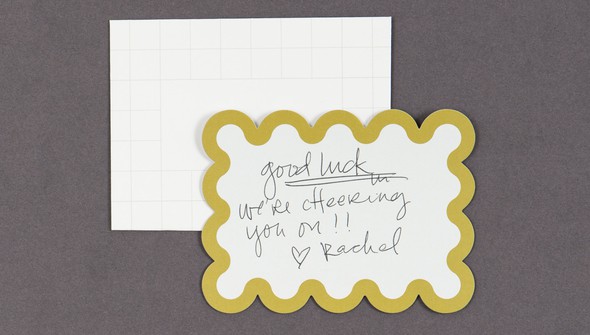 good luck
we're cheering
you on!!
♡ Rachel